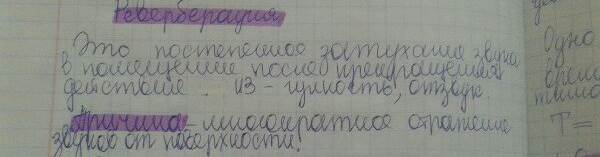 Реверберация
Это постепенное затухание звука
в помещение после прекращения
действие. из - гулкость, отзвук.
Причина - многократное отражение
звуков от поверхности!
Одно
T =